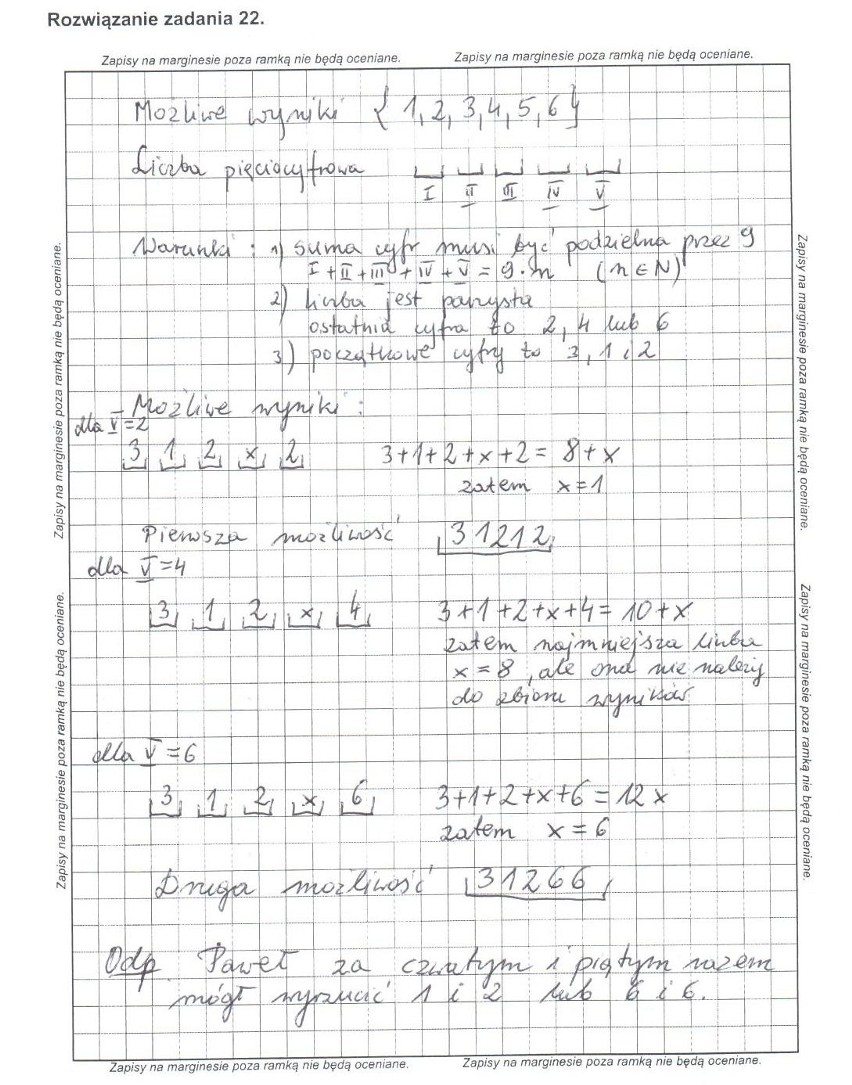 Rozwiązanie zadania 22.
Zapisy na marginesie poza ramką nie będą oceniane. Zapisy na marginesie poza ramką nie będą oceniane.
Możliwe wyniki {1,2,3,4,5,6}
Liczba pięciocyfrowa
I II III IV V
Warunki: 1) suma cyfr musi być podzielna przez 9
I+II+III+IV+V=9·n (n∈N)
2) liczba jest parzysta
ostatnia cyfra to 2, 4 lub 6
3) początkowe cyfry to 3, 1 i 2
Możliwe wyniki:
dla V=2
3 1 2 x 2 3+1+2+x+2= 8+x
zatem x=1
Pierwsza możliwość 31212
dla V=4
3 1 2 x 4 3+1+2+x+4= 10+x
zatem najmniejsza liczba
x=8, ale ona nie należy
do zbioru wyników
dla V=6
3 1 2 x 6 3+1+2+x+6=12x
zatem x=6
Druga możliwość 31266
Odp Paweł za czwartym i piątym razem
mógł wyrzucić 1 i 2 lub 6 i 6.
Zapisy na marginesie poza ramką nie będą oceniane. Zapisy na marginesie poza ramką nie będą oceniane.
Zapisy na marginesie poza ramką nie będą oceniane. Zapisy na marginesie poza ramką nie będą oceniane.
Zapisy na marginesie poza ramką nie będą oceniane. Zapisy na marginesie poza ramką nie będą oceniane.